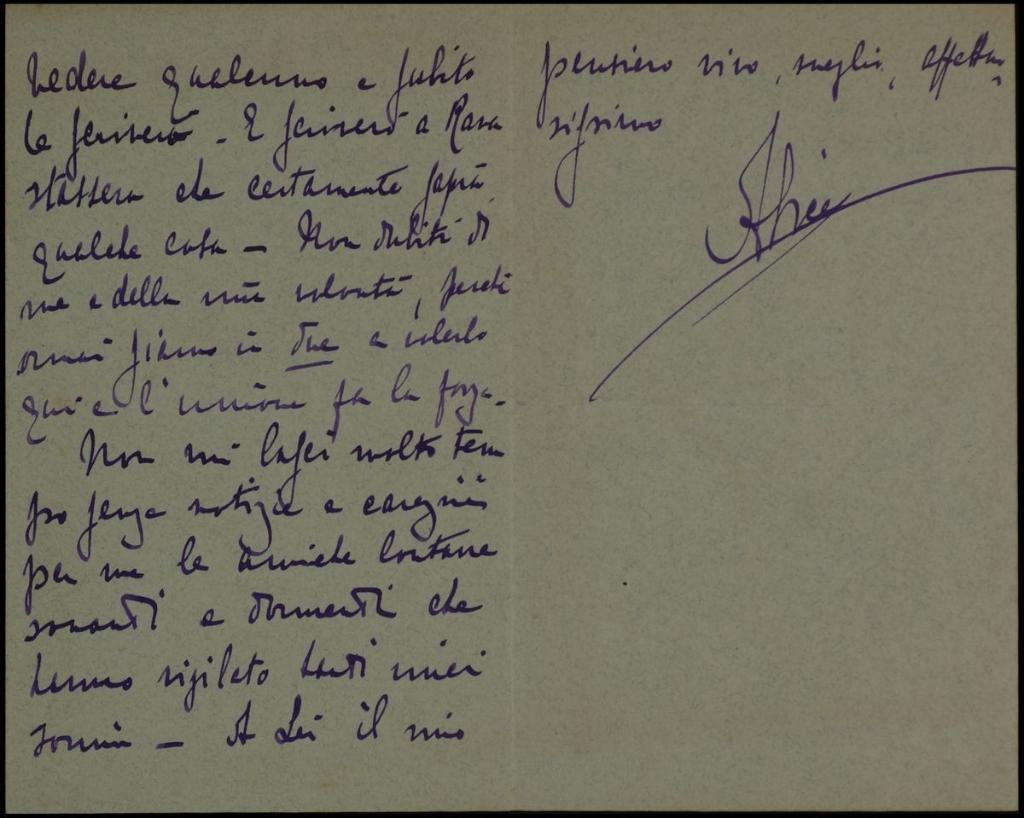 vedere qualcuno e subito
le scriverò - E scriverò a Rava
stassera che certamente saprà
qualche cosa — Non dubiti di
me e della mia volontà, perchè
ormai siamo in due a volerlo
qui e l'unione fa la forza -
Non mi lasci molto tem
po senza notizie e carezzi
per me le amiche lontane
sonanti e dormenti che
hanno vigilato tanti miei
sonni — A Lei il mio
pensiero vivo, sveglio, affettuo
sissimo